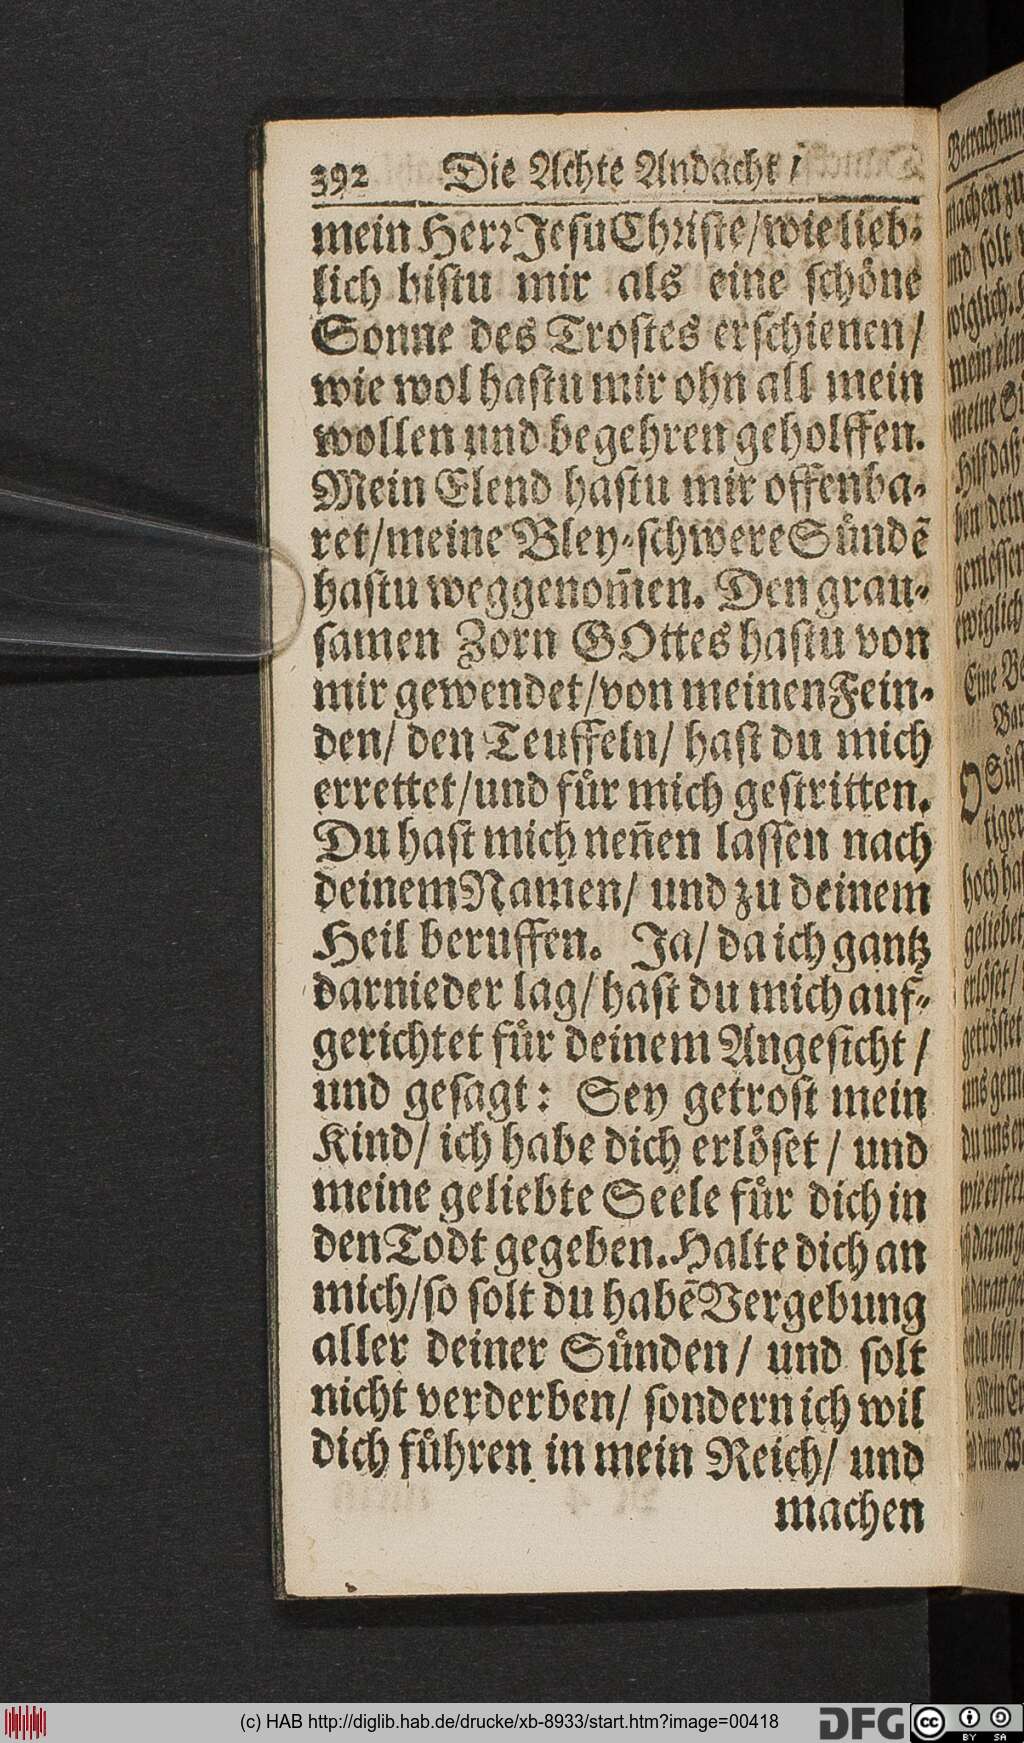 392 Die Achte Andacht /
mein Herr Jesu Christe/ wie lieb-
lich bistu mir als eine schöne
Sonne des Trostes erschienen/
wie wol hastu mir ohn all mein
wollen und begehren geholffen.
Mein Elend hastu mir offenba-
ret/ meine Bley-schwere Sündẽ
hastu weggenom̃en. Den grau-
samen Zorn GOttes hastu von
mir gewendet/ von meinen Fein-
den/ den Teuffeln/ hast du mich
errettet/ und für mich gestritten.
Du hast mich neñen lassen nach
deinem Namen/ und zu deinem
Heil beruffen. Ja/ da ich gantz
darnieder lag/ hast du mich auf-
gerichtet für deinem Angesicht /
und gesagt: Sey getrost mein
Kind/ ich habe dich erlöset / und
meine geliebte Seele für dich in
den Todt gegeben. Halte dich an
mich/ so solt du habẽ Vergebung
aller deiner Sünden/ und solt
nicht verderben/ sondern ich wil
dich führen in mein Reich/ und
machen
(c) HAB http://diglib.hab.de/drucke/xb-8933/start.htm?image=00418
DFG
cc BY SA